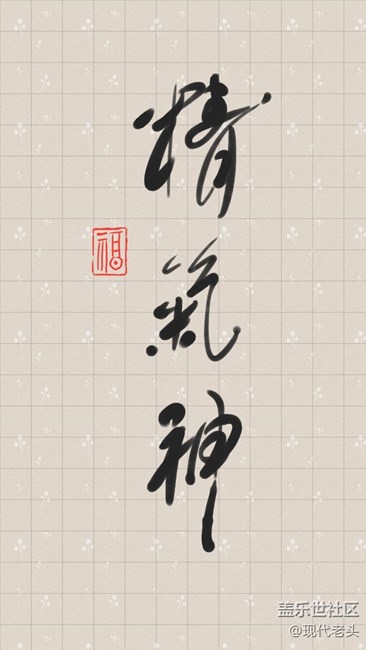 精
氣
神
福
盖乐世社区
@现代老头